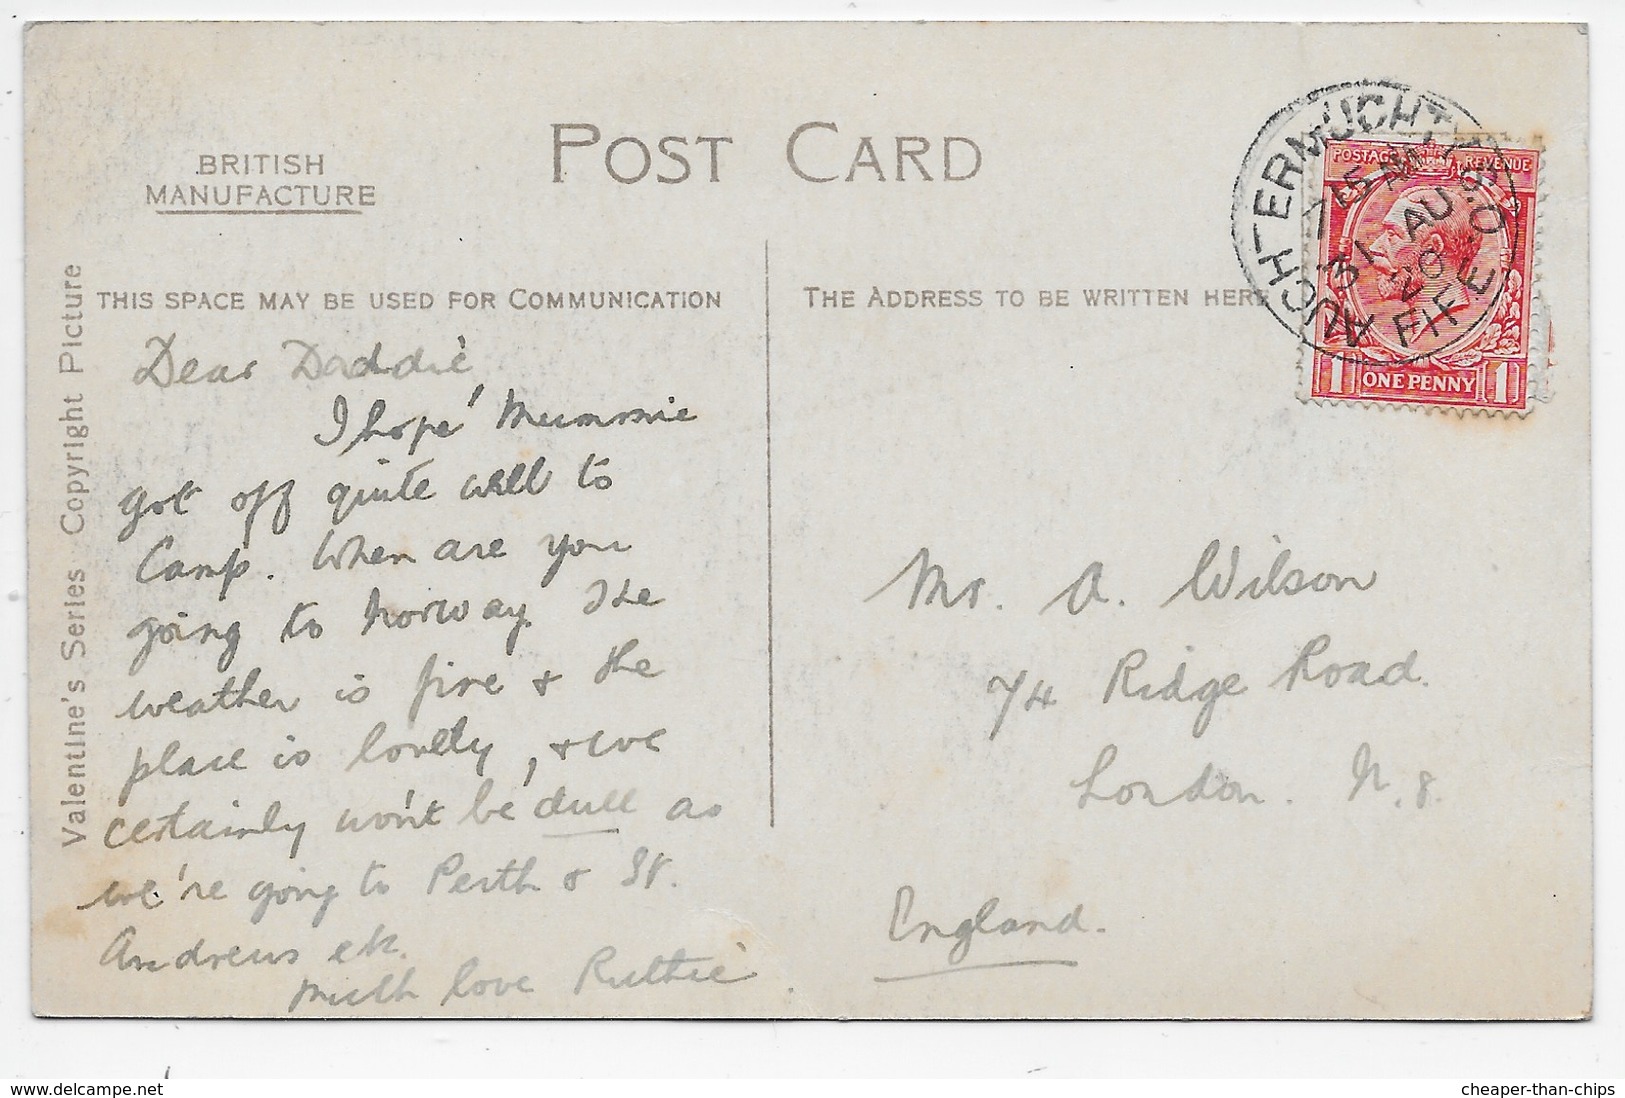 BRITISH
MANUFACTURE
POST CARD
THIS SPACE MAY BE USED FOR COMMUNICATION
THE ADDRESS TO BE WRITTEN HERE
Valentine's Series Copyright Picture
Dear Daddie
I hope Mummie
got off quite well to
Camp. When are you
going to Norway. The
weather is fine & the
place is lovely, & we
certainly won't be dull as
we're going to Perth & St.
Andrews etc.
Much love Ruthie
Mr. A. Wilson
74 Ridge Road.
London. N. 8.
England.
AUCHTERMUCHTY S.O
7 15 AM
31 AU
20
FIFE
POSTAGE REVENUE
1 ONE PENNY 1
www.delcampe.net
cheaper-than-chips